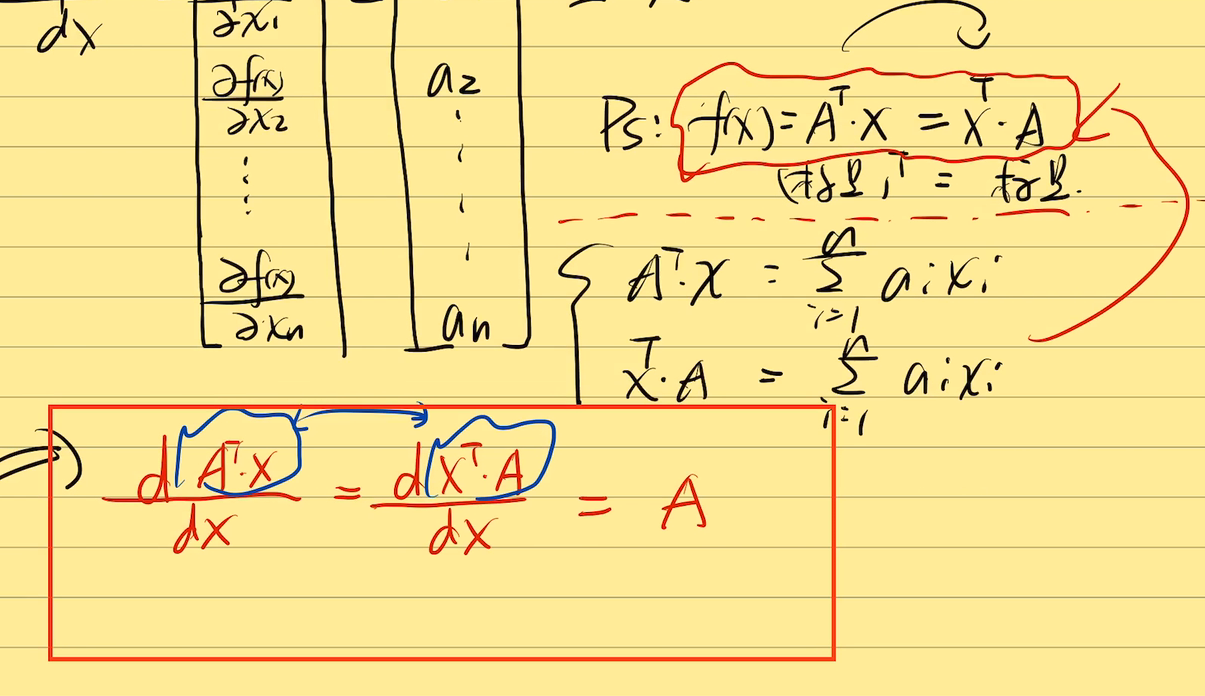 dx
∂x₁
∂f(x)
∂x₂
⋮
∂f(x)
∂xₙ
a₂
⋮
aₙ
Ps: f(x) = Aᵀ·X = Xᵀ·A
(标量)ᵀ = 标量.
Aᵀ·X = Σⁿᵢ₌₁ aᵢxᵢ
Xᵀ·A = Σⁿᵢ₌₁ aᵢxᵢ
d(Aᵀ·X) / dX = d(Xᵀ·A) / dX = A